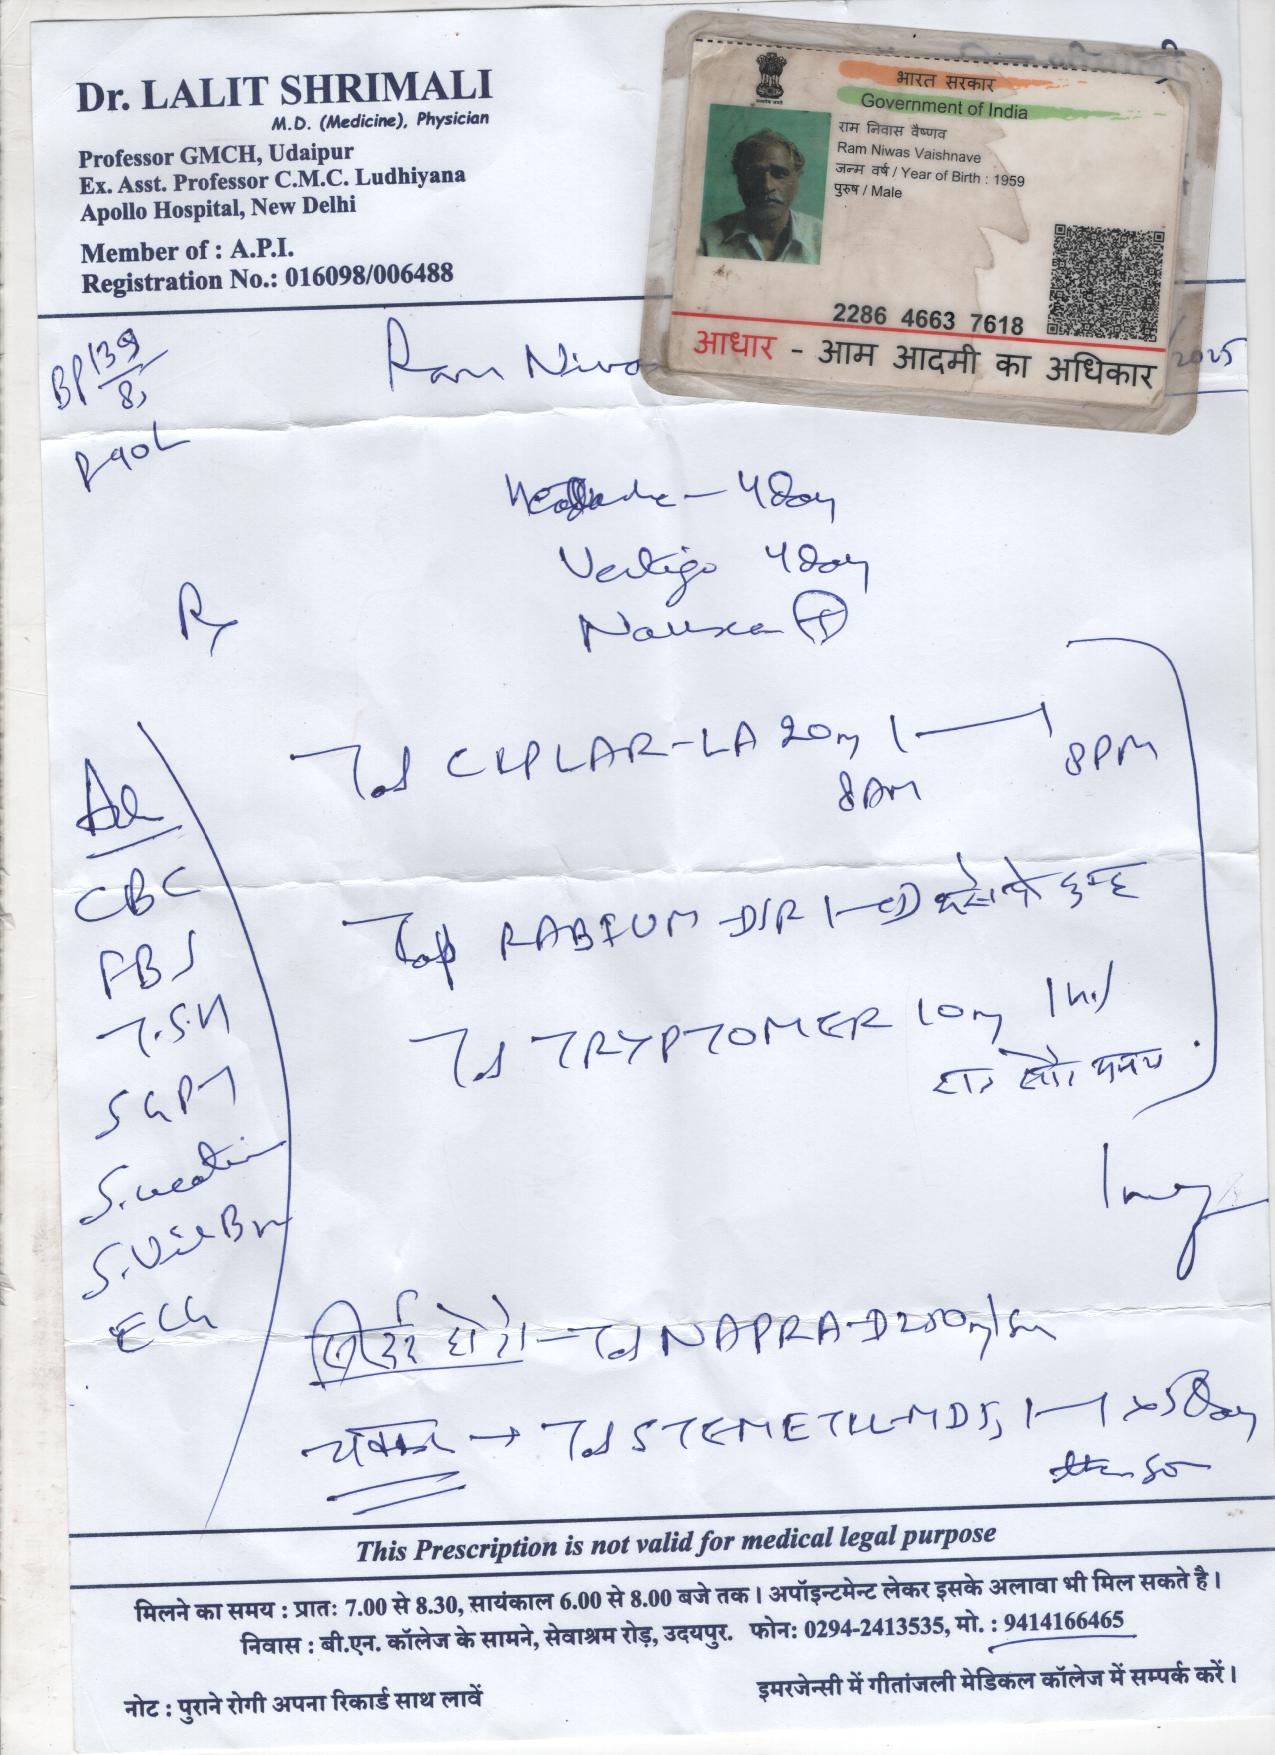 Dr. LALIT SHRIMALI
M.D. (Medicine), Physician
Professor GMCH, Udaipur
Ex. Asst. Professor C.M.C. Ludhiyana
Apollo Hospital, New Delhi
Member of : A.P.I.
Registration No.: 016098/006488
भारत सरकार
Government of India
राम निवास वैष्णव
Ram Niwas Vaishnave
जन्म वर्ष / Year of Birth : 1959
पुरुष / Male
2286 4663 7618
आधार - आम आदमी का अधिकार
BP 139
Ram Niwas
/2025
Headache - 4 Day
Vertigo 4 Day
Nausea +
Rx
Tab CIPLAR-LA 20mg 1 — 1
8AM 8PM
Adv
CBC
FBS
T.S.H
SGPT
S. Creatinine
ECG
Cap RABIUM DSR
Tab TRYPTOMER 10mg 1
सिरदर्द होने - Tab NAPRA-D 250mg
चक्कर → Tab STEMETIL-MD 5, 1—1 x 5 Day
This Prescription is not valid for medical legal purpose
मिलने का समय : प्रातः 7.00 से 8.30, सायंकाल 6.00 से 8.00 बजे तक। अपॉइन्टमेन्ट लेकर इसके अलावा भी मिल सकते है।
निवास : बी.एन. कॉलेज के सामने, सेवाश्रम रोड़, उदयपुर. फोन: 0294-2413535, मो. : 9414166465
नोट : पुराने रोगी अपना रिकार्ड साथ लावें
इमरजेन्सी में गीतांजली मेडिकल कॉलेज में सम्पर्क करें।